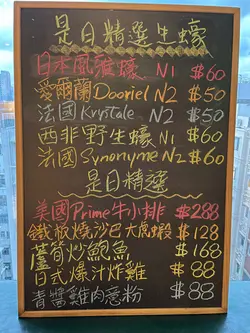 是日精選生蠔
日本風雅蠔 N1 $60
愛爾蘭 Dooriel N2 $50
法國 Krystale N2 $50
西非野生蠔 N1 $60
法國 Synonyme N2 $60
是日精選
美國Prime牛小排 $288
鐵板燒沙巴大虎蝦 $128
蘆筍炒鮑魚 $168
日式爆汁炸雞 $88
青醬雞肉意粉 $88